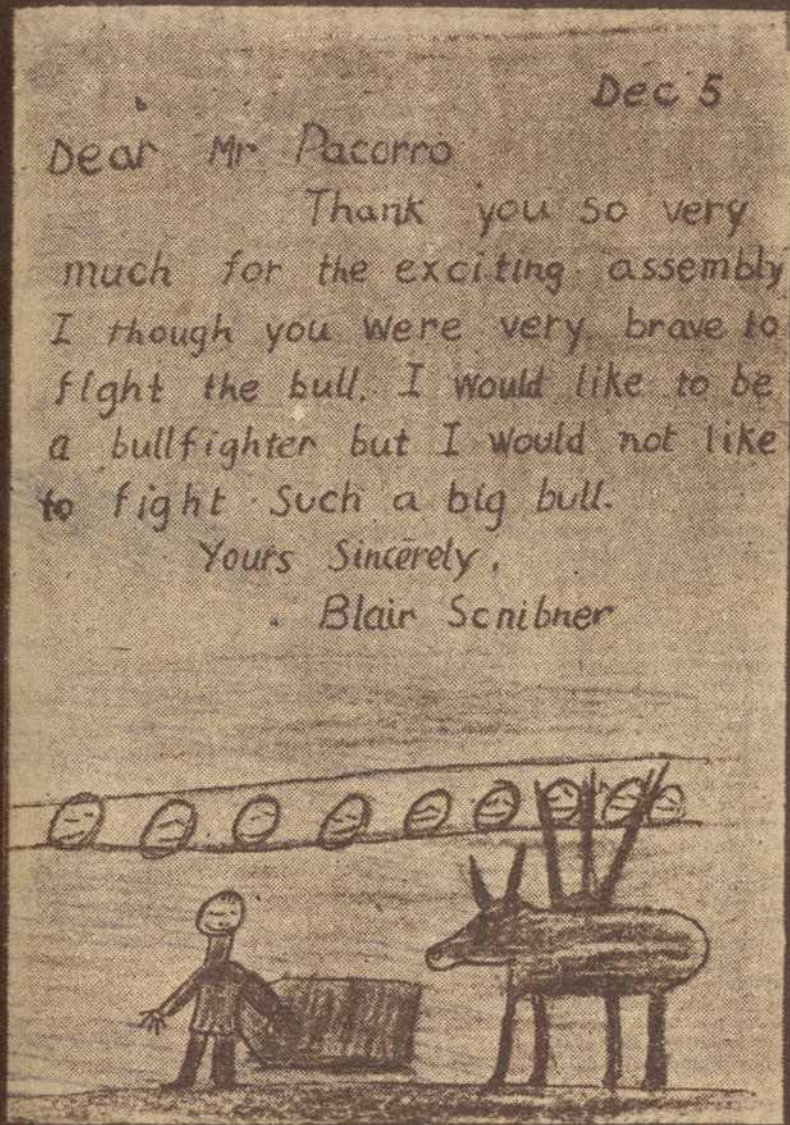 Dec 5
Dear Mr Pacorro
Thank you so very
much for the exciting assembly
I though you were very brave to
fight the bull. I would like to be
a bullfighter but I would not like
to fight such a big bull.
Yours Sincerely,
Blair Scnibner